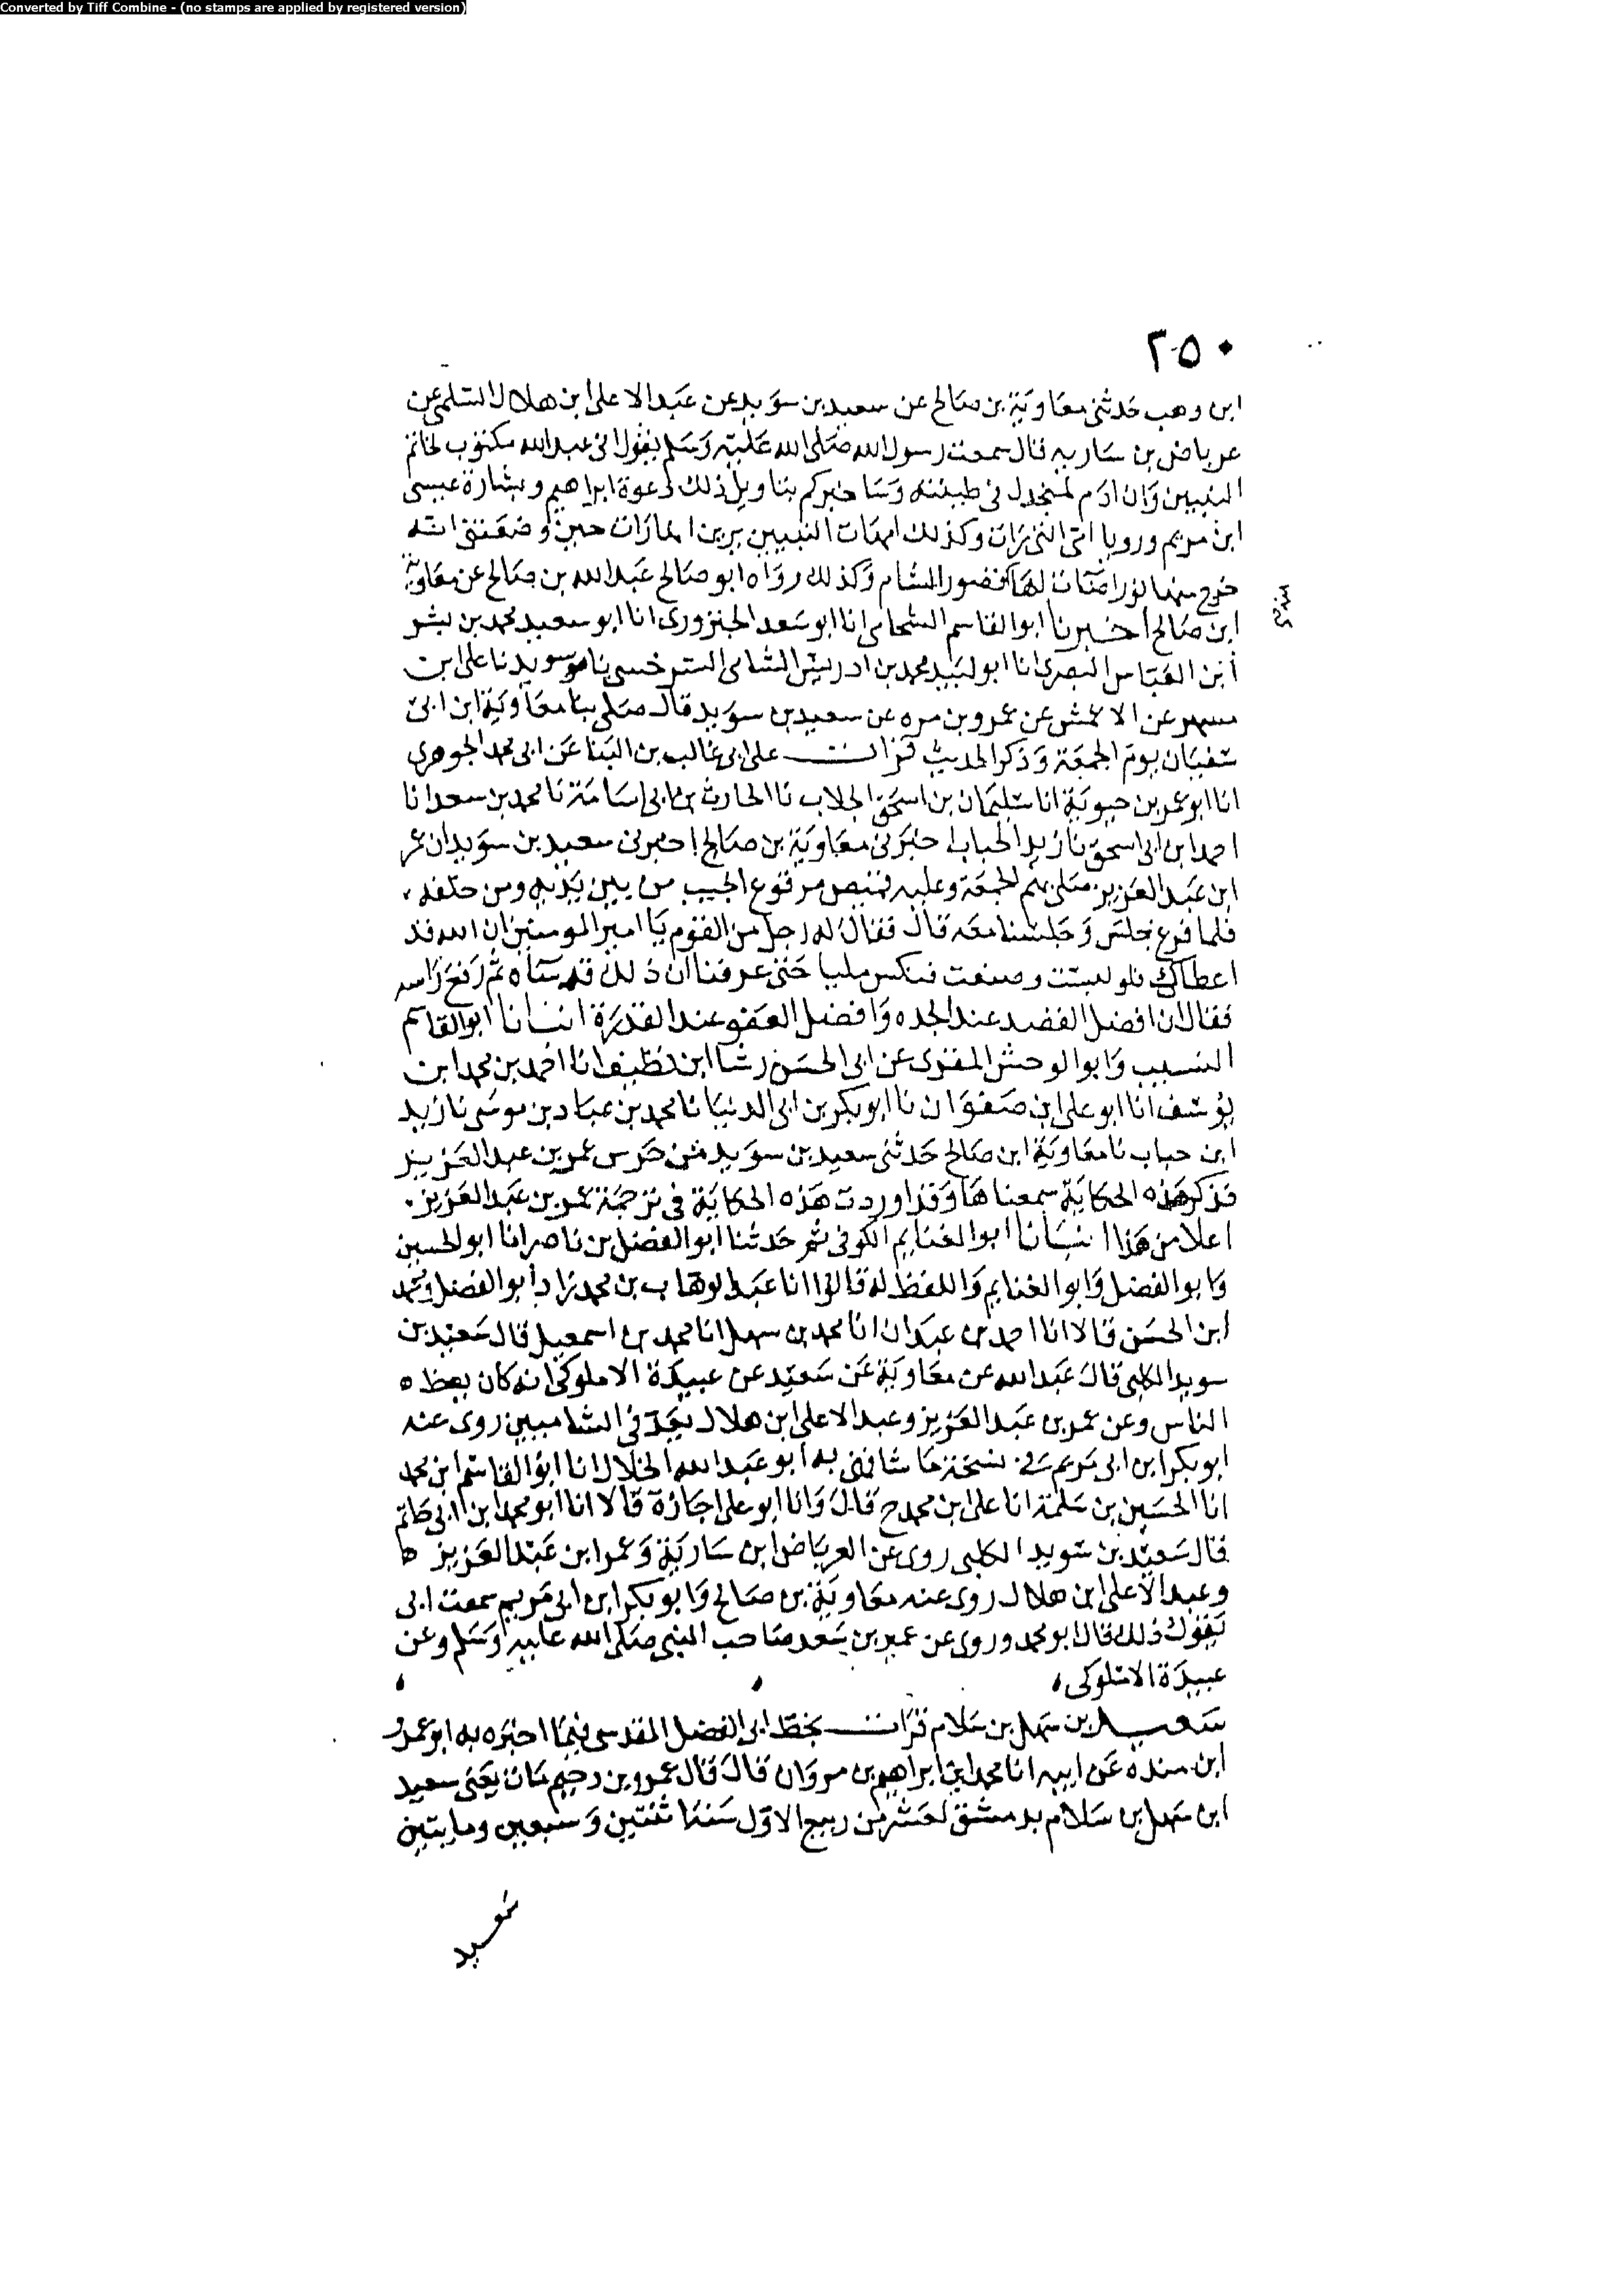 Converted by Tiff Combine - (no stamps are applied by registered version)
٢٥٠
ابن وهب حدثني معاوية بن صالح عن سعيد بن سويد عن عبد الاعلى ابن هلال السلمي عن
عرباض بن ساريه قال سمعت رسول الله صلى الله عليه وسلم يقول اني عبد الله مكتوب لخاتم
النبيين وان ادم لمنجدل في طينته وساخبركم بتاويل ذلك دعوة ابراهيم وبشارة عيسى
ابن مريم ورويا امي التي رات وكذلك امهات النبيين يرين انها رات حين وضعتني انه
خرج منها نورا ضات لها قصور الشام وكذلك رواه ابو صالح عبد الله بن صالح عن معاوية
ابن صالح اخبرنا ابو القاسم الشحامي انا ابو سعد الجنزورى انا ابو سعيد محمد بن بشر
ابن العباس البصرى انا ابو لبيد محمد بن ادريس الشامي السرخسي نا سويد نا على ابن
مسهر عن الاعمش عن عمرو بن مره عن سعيد بن سويد قال صلى بنا معاوية ابن ابي
سفيان يوم الجمعة وذكر الحديث قرات على ابي غالب بن البنا عن ابي محمد الجوهري
انا ابو عمر بن حيوية انا سليمان بن اسحق الجلاب نا الحارث بن ابي اسامة نا محمد بن سعد انا
احمد ابن ابي اسحق نا زيد الحباب اخبرني معاوية بن صالح اخبرني سعيد بن سويد ان عمر
ابن عبد العزيز صلى بهم الجمعة وعليه قميص مرقوع الجيب من بين يديه ومن خلفه،
فلما فرغ جلس وجلسنا معه قال فقال له رجل من القوم يا امير المومنين ان الله قد
اعطاك فلو لبست وصنعت فنكس مليا حتى عرفنا ان ذلك قد ساه ثم رفع راسه
فقال ان افضل القصد عند الجده وافضل العفو عند القدرة انبانا ابو القاسم
النسيب وابو الوحش المقرى عن ابي الحسن رشا ابن نظيف انا احمد بن محمد ابن
يوسف انا ابو على ابن صفوان نا ابو بكر بن ابي الدنيا نا محمد بن عباد بن موسى نا زيد
ابن حباب نا معاوية ابن صالح حدثني سعيد بن سويد من حرس عمر بن عبد العزيز
فذكر هذه الحكاية سمعناها وقد اوردت هذه الحكاية في ترجمة عمر بن عبد العزيز.
اعلا من هذا انبانا ابو الغنايم الكوفي ثم حدثنا ابو الفضل بن ناصر انا ابو الحسين
وابو الفضل وابو الغنايم واللفظ له قالوا انا عبد الوهاب بن محمد زاد ابو الفضل ومحمد
ابن الحسن قالا انا احمد بن عبدان انا محمد بن سهل انا محمد بن اسمعيل قال سعيد بن
سويد الكلبي قال عبد الله عن معاوية عن سعيد عن عبيدة الاملوكي انه كان يعظ ه
الناس وعن عمر بن عبد العزيز وعبد الاعلى ابن هلال يعد في الشاميين روى عنه
ابو بكر ابن ابي مريم في نسخة ما شافهني به ابو عبد الله الخلال انا ابو القاسم ابن محمد
انا الحسين بن سلمة انا على ابن محمد ح قال وانا ابو على اجازة قالا انا ابو محمد ابن ابي حاتم
قال سعيد بن سويد الكلبي روى عن العرباض ابن سارية وعمر ابن عبد العزيز ه
وعبد الاعلى ابن هلال روى عنه معاوية بن صالح وابو بكر ابن ابي مريم سمعت ابي
يقول ذلك قال ابو محمد وروى عن عمير بن سعد صاحب النبي صلى الله عليه وسلم وعن
عبيدة الاملوكي،
سعيد بن سهل بن سلام قرات بخط ابي الفضل المقدسي فيما اخبره به ابو عمرو
ابن منده عن ابيه انا محمد ابن ابراهيم بن مروان قال قال عمرو بن دحيم مات يعني سعيد
ابن سهل بن سلام بدمشق لعشر من ربيع الاول سنة ثنتين وسبعين ومايتين